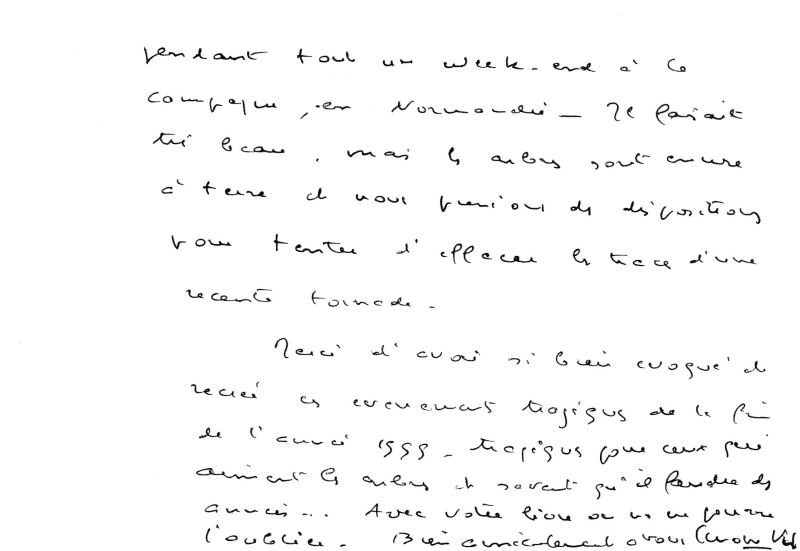 pendant tout un week-end à la
campagne, en Normandie — Il faisait
très beau, mais les arbres sont encore
à terre et nous prenions des dispositions
pour tenter d'effacer les traces d'une
récente tornade.
Merci d'avoir si bien évoqué et
recréé ces événements tragiques de la fin
de l'année 1999 - tragiques pour ceux qui
aiment les arbres et savent qu'il faudra des
années... Avec votre livre on ne pourra
l'oublier. Bien amicalement à vous